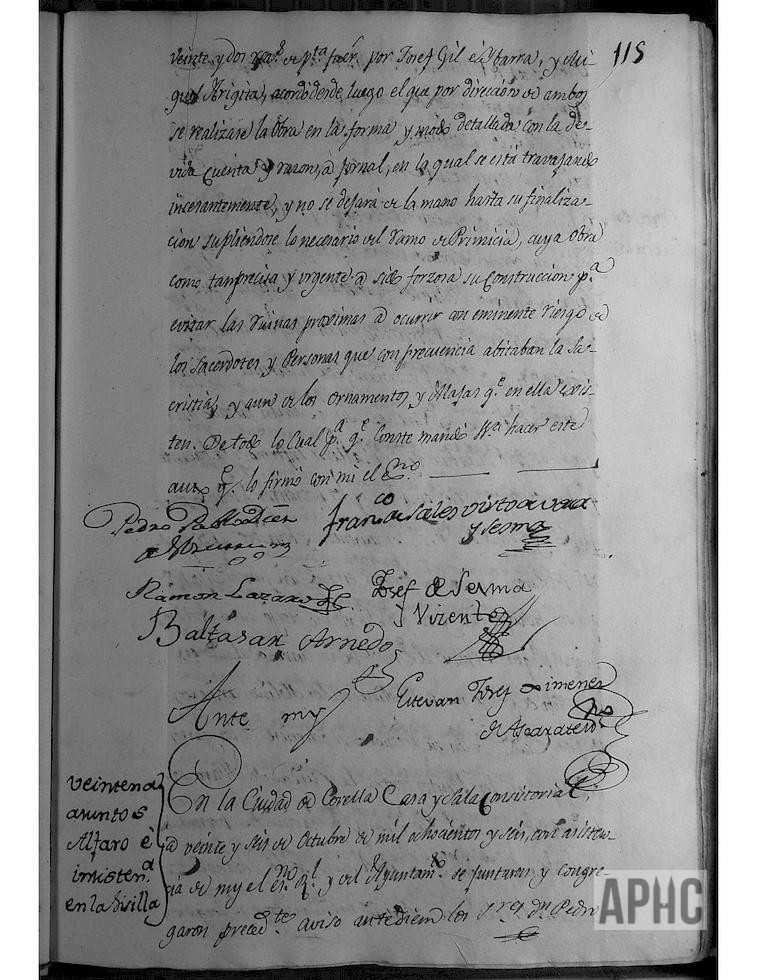 115
veinte y dos por Josef Gil é Ybarra, y Mi-
guel Arigita, acordó desde luego el que por direccion de ambos
se realizase la Obra en la forma y modo detallada con la de-
vida Cuenta y razon, à Jornal, en la qual se está travajando
incesantemente, y no se dejará de la mano hasta su finaliza-
cion supliendose lo necesario del Ramo de Primicia, cuya Obra
como tan precisa y urgente à sido forzosa su Construccion p.ª
evitar las Ruinas proximas à ocurrir con eminente riesgo de
los Sacerdotes y Personas que con frecuencia abitaban la Sa-
cristia, y aun de los Ornamentos y Alajas q.e en ella exis-
ten. De todo lo Cual p.ª q.e Conste mandó hacer este
auto q.e lo firmó con mi el Es.no
Pedro Pablo
Fran.co de Sales Virto de Vera
y Sesma
Ramon Lazaro
Josef de Sesma
y Vizente
Baltasar Arnedo
Ante my
Estevan Josef Ximenez
de Ascarate
veintena
asuntos
Alfaro é
insisten.ª
en la Sisilla
En la Ciudad de Corella Casa y Sala Consistorial,
à veinte y seis de Octubre de mil ochocientos y seis, con asisten-
cia de my el es.no R.l y del Ayuntam.to se juntaron y congre-
garon preced.te aviso antediem los S.res D.n Pedro
APHC